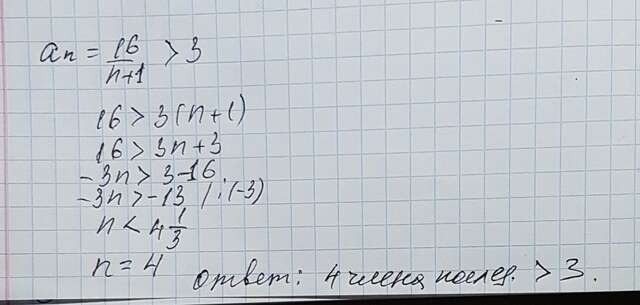 aₙ = 16/(n+1) > 3
16 > 3(n+1)
16 > 3n+3
-3n > 3-16
-3n > -13 /:(-3)
n < 4 1/3
n = 4
ответ: 4 члена послед. > 3.